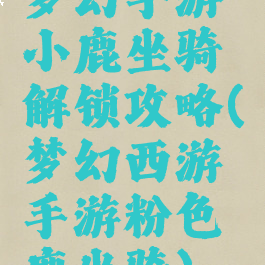 梦幻手游
小鹿坐骑
解锁攻略(
梦幻西游
手游粉色
鹿坐骑)